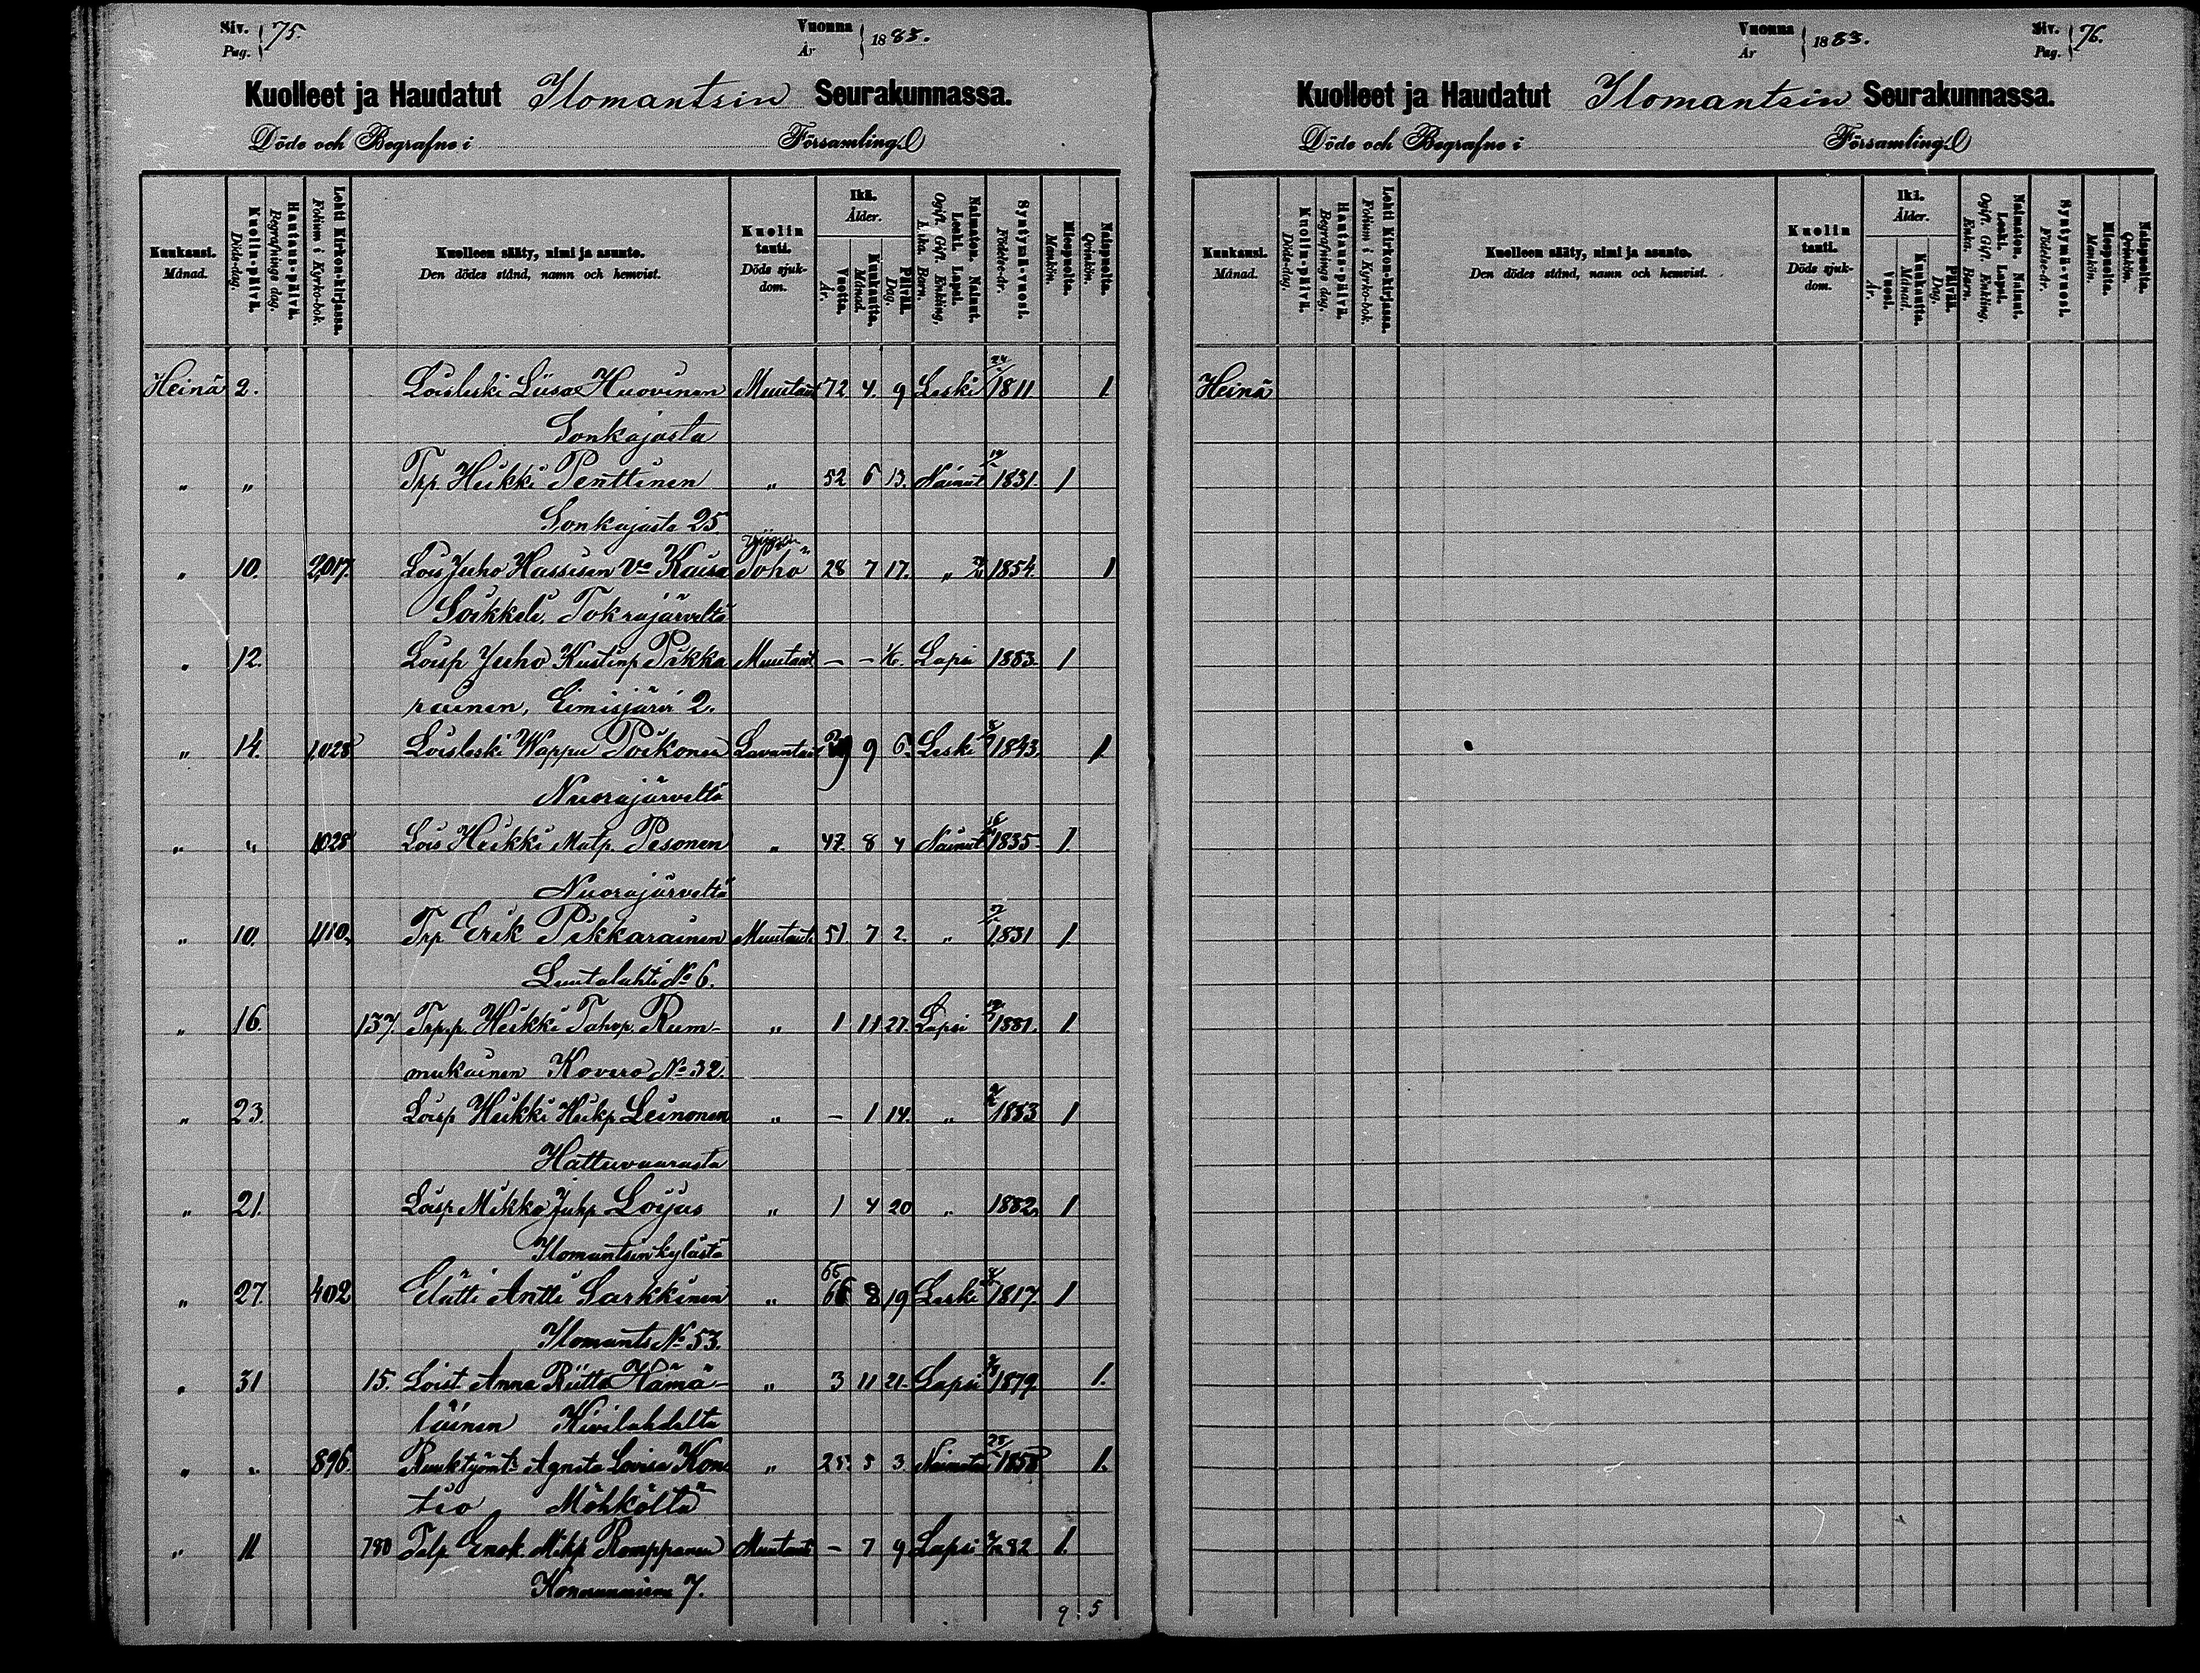 Siv. Pag. 75.
Vuonna År 1883.
Kuolleet ja Haudatut Ilomantsin Seurakunnassa.
Döde och Begrafne i Församling
Kuukausi. Månad.
Kuolin-päivä. Döds-dag.
Hautaus-päivä. Begrafnings dag.
Lehti Kirkon-kirjassa. Folium i Kyrko-bok.
Kuolleen sääty, nimi ja asunto. Den dödes stånd, namn och hemvist.
Kuolin tauti. Döds sjukdom.
Ikä. Ålder.
Vuotta. År.
Kuukautta. Månad.
Päivää. Dag.
Naimaton. Nainut. Leski. Lapsi. Ogift. Gift. Enkling, Enka. Barn.
Syntymä-vuosi. Födelse-år.
Miespuolta. Mankön.
Naispuolta. Qvinkön.
Heinä 2. Loisleski Liisa Huovinen Muutaut 72 4. 9 Leski 24 1811 1
Sonkajasta
" " Trp. Heikki Penttinen " 52 6 13. Nainut 1831. 1
Sonkajasta 25.
" 10. 2017. Lois Juho Hassisen Vo Kaisa 28 7 17. " 1854. 1
Soikkeli, Tokrajärveltä
" 12. Loisp Juho Kustinp Pikka Muutaut - - Lapsi 1883. 1
rainen, Eimisjärvi 2.
" 14. 1028 Loisleski Wappu Poikonen Lavantaut 39 9 6. Leski 1843. 1
Nuorajärveltä
" " 1028 Lois Heikki Matp. Pesonen " 47. 8 4 Nainut 1835. 1.
Nuorajärveltä
" 10. 410. Trp Erik Pikkarainen Muutaut 51. 7 2. " 1831 1.
Luutalahti No 6.
" 16. 137. Trp.p. Heikki Tahvp. Rum- " 1 11 27. Lapsi 1881. 1.
mukainen Kovero No 32.
" 23. Loisp Heikki Heikp. Leinonen " - 1 14. " 1883 1
Hattuvaarasta
" 21. Loisp Mikko Juhp. Loijas " 1 4 20 " 1882. 1
Ilomantsinkylästä
" 27. 402 Elätti Antti Sarkkinen " 66 8 19 Leski 1817. 1
Ilomants No 53.
" 31 15. Loist. Anna Riitta Hämä- " 3 11 21. Lapsi 1879. 1.
läinen Kivilahdelta
" " 896. Ruuktyömt Agneta Lovisa Kon- " 25. 5 3. Naimaton 1858 1.
tio Möhköltä
" 11 780 Talp. Enok Mikp Romppanen Muutaut - 7 9 Lapsi 82 1.
7.
9. 5
Vuonna År 1883.
Siv. Pag. 76.
Kuolleet ja Haudatut Ilomantsin Seurakunnassa.
Döde och Begrafne i Församling
Kuukausi. Månad.
Kuolin-päivä. Döds-dag.
Hautaus-päivä. Begrafnings dag.
Lehti Kirkon-kirjassa. Folium i Kyrko-bok.
Kuolleen sääty, nimi ja asunto. Den dödes stånd, namn och hemvist.
Kuolin tauti. Döds sjukdom.
Ikä. Ålder.
Vuosi. År.
Kuukautta. Månad.
Päivää. Dag.
Naimaton. Nainut. Leski. Lapsi. Ogift. Gift. Enkling, Enka. Barn.
Syntymä-vuosi. Födelse-år.
Miespuolta. Mankön.
Naispuolta. Qvinkön.
Heinä